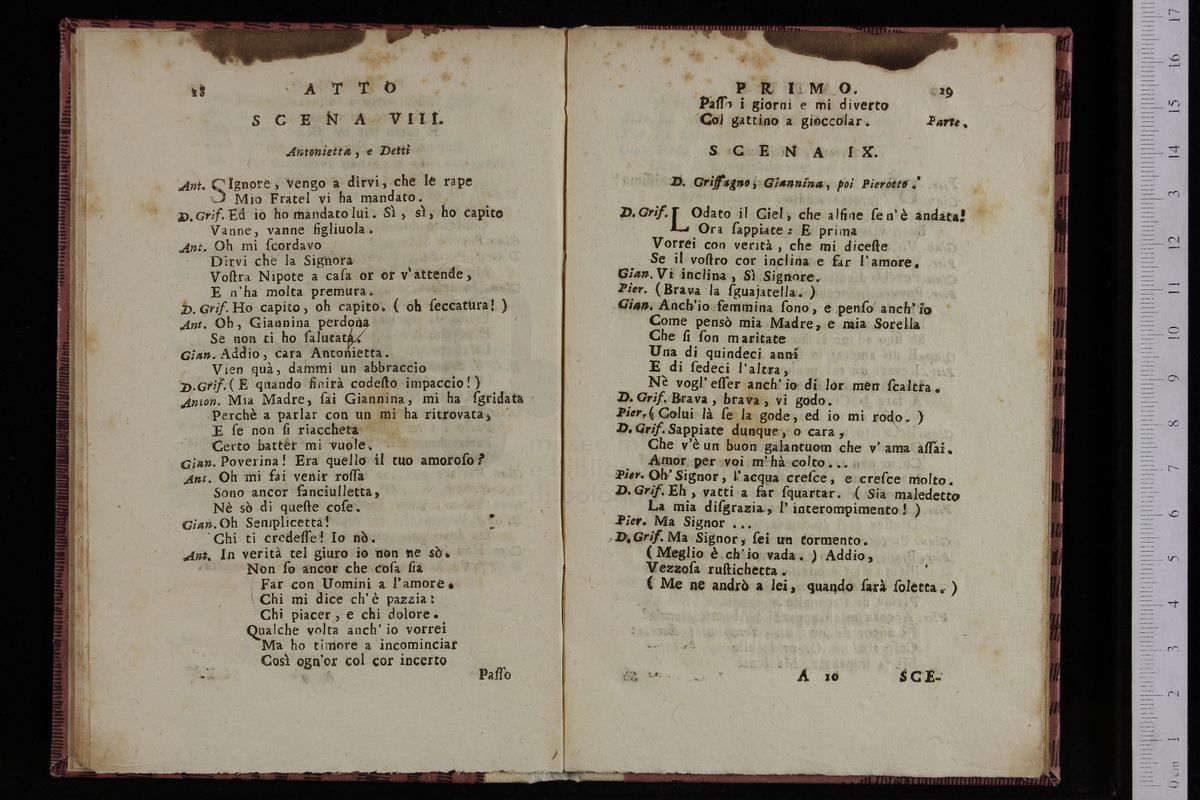 18 ATTO
SCENA VIII.
Antonietta, e Detti
Ant. SIgnore, vengo a dirvi, che le rape
Mio Fratel vi ha mandato.
D. Grif. Ed io ho mandato lui. Sì, sì, ho capito
Vanne, vanne figliuola.
Ant. Oh mi ſcordavo
Dirvi che la Signora
Voſtra Nipote a caſa or or v'attende,
E n'ha molta premura.
D. Grif. Ho capito, oh capito. ( oh ſeccatura! )
Ant. Oh, Giannina perdona
Se non ti ho ſalutata.
Gian. Addio, cara Antonietta.
Vien quà, dammi un abbraccio
D. Grif. ( E quando finirà codeſto impaccio! )
Anton. Mia Madre, ſai Giannina, mi ha ſgridata
Perchè a parlar con un mi ha ritrovata,
E ſe non ſi riaccheta
Certo batter mi vuole.
Gian. Poverina! Era quello il tuo amoroſo?
Ant. Oh mi fai venir roſſa
Sono ancor fanciulletta,
Nè sò di queſte coſe.
Gian. Oh Semplicetta!
Chi ti credeſſe! Io nò.
Ant. In verità tel giuro io non ne sò.
Non ſo ancor che coſa ſia
Far con Uomini a l'amore.
Chi mi dice ch'è pazzia:
Chi piacer, e chi dolore.
Qualche volta anch' io vorrei
Ma ho timore a incominciar
Così ogn'or col cor incerto
Paſſo
PRIMO. 19
Paſſo i giorni e mi diverto
Col gattino a gioccolar. Parte.
SCENA IX.
D. Griffagno, Giannina, poi Pierotto.
D. Grif. LOdato il Ciel, che alfine ſen'è andata!
Ora ſappiate: E prima
Vorrei con verità, che mi diceſte
Se il voſtro cor inclina e far l'amore.
Gian. Vi inclina, Sì Signore.
Pier. (Brava la ſguajatella. )
Gian. Anch'io femmina ſono, e penſo anch' io
Come pensò mia Madre, e mia Sorella
Che ſi ſon maritate
Una di quindeci anni
E di ſedeci l'altra,
Nè vogl' eſſer anch' io di lor men ſcaltra.
D. Grif. Brava, brava, vi godo.
Pier. ( Colui là ſe la gode, ed io mi rodo. )
D. Grif. Sappiate dunque, o cara,
Che v'è un buon galantuom che v' ama aſſai.
Amor per voi m'hà colto...
Pier. Oh' Signor, l'acqua creſce, e creſce molto.
D. Grif. Eh, vatti a far ſquartar. ( Sia maledetto
La mia diſgrazia, l' interompimento! )
Pier. Ma Signor ...
D. Grif. Ma Signor, ſei un tormento.
( Meglio è ch'io vada. ) Addio,
Vezzoſa ruſtichetta.
( Me ne andrò a lei, quando ſarà ſoletta. )
A 10 SCE-